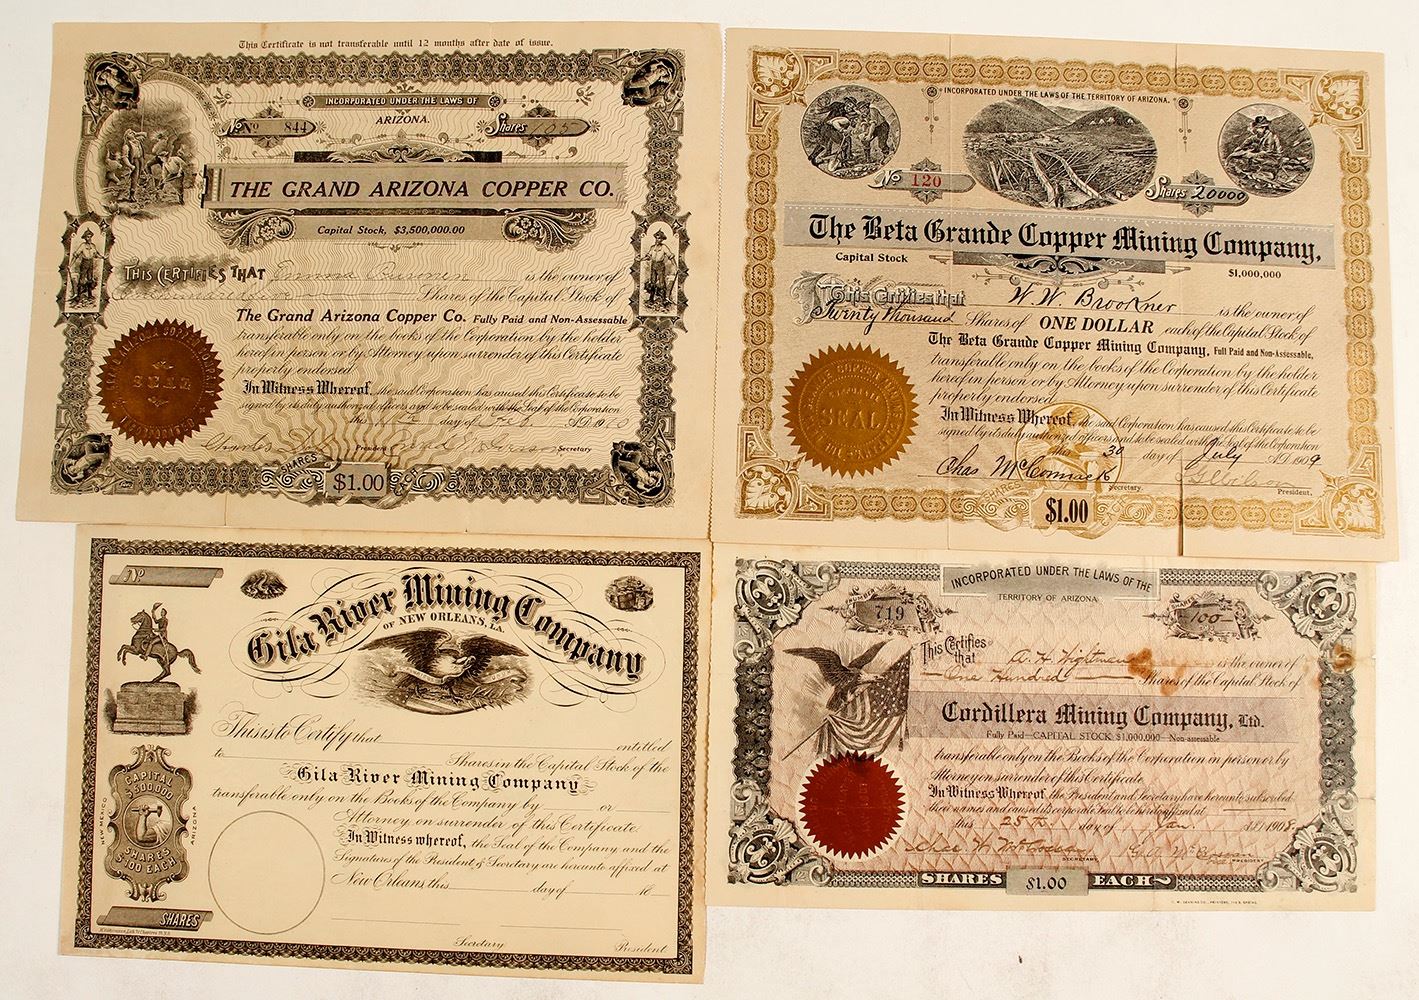 This Certificate is not transferable until 12 months after date of issue.
INCORPORATED UNDER THE LAWS OF
ARIZONA.
No 844
Shares 105
THE GRAND ARIZONA COPPER CO.
Capital Stock, $3,500,000.00
THIS CERTIFIES THAT Emma is the owner of
Shares of the Capital Stock of
The Grand Arizona Copper Co. Fully Paid and Non-Assessable
transferable only on the books of the Corporation by the holder
hereof in person or by Attorney upon surrender of this Certificate
properly endorsed.
In Witness Whereof, the said Corporation has caused this Certificate to be
signed by its duly authorized officers and to be sealed with the Seal of the Corporation
this day of Feb A.D. 1910
Charles
President
Secretary
SEAL
SHARES
$1.00
INCORPORATED UNDER THE LAWS OF THE TERRITORY OF ARIZONA.
No 120
Shares 20000
The Beta Grande Copper Mining Company,
Capital Stock
$1,000,000
This Certifies that W. W. Brookner is the owner of
Twenty Thousand Shares of ONE DOLLAR each of the Capital Stock of
The Beta Grande Copper Mining Company, Full Paid and Non-Assessable,
transferable only on the books of the Corporation by the holder
hereof in person or by Attorney upon surrender of this Certificate
properly endorsed.
In Witness Whereof, the said Corporation has caused this Certificate to be
signed by its duly authorized officers and to be sealed with the Seal of the Corporation
this 30 day of July A.D. 1909
Chas McCormack
Secretary.
President.
SEAL
SHARES
$1.00
No
Gila River Mining Company
OF NEW ORLEANS, LA.
This is to Certify that entitled
to Shares in the Capital Stock of the
Gila River Mining Company
transferable only on the Books of the Company by or
Attorney on surrender of this Certificate.
In Witness whereof, the Seal of the Company and the
Signatures of the President & Secretary are hereunto affixed at
New Orleans this day of 18
Secretary
President
CAPITAL
$500,000
SHARES
$100 EACH
NEW MEXICO
ARIZONA
SHARES
INCORPORATED UNDER THE LAWS OF THE
TERRITORY OF ARIZONA
719
SHARES
-100-
This Certifies
that A. H. Wightman is the owner of
One Hundred Shares of the Capital Stock of
Cordillera Mining Company, Ltd.
Fully Paid—CAPITAL STOCK $1,000,000—Non-assessable
transferable only on the Books of the Corporation in person or by
Attorney on surrender of this Certificate.
In Witness Whereof, the President and Secretary have hereunto subscribed
their names and caused the corporate Seal to be hereto affixed at
this 25th day of Jan. A.D. 1908
SECRETARY
PRESIDENT
SHARES $1.00 EACH